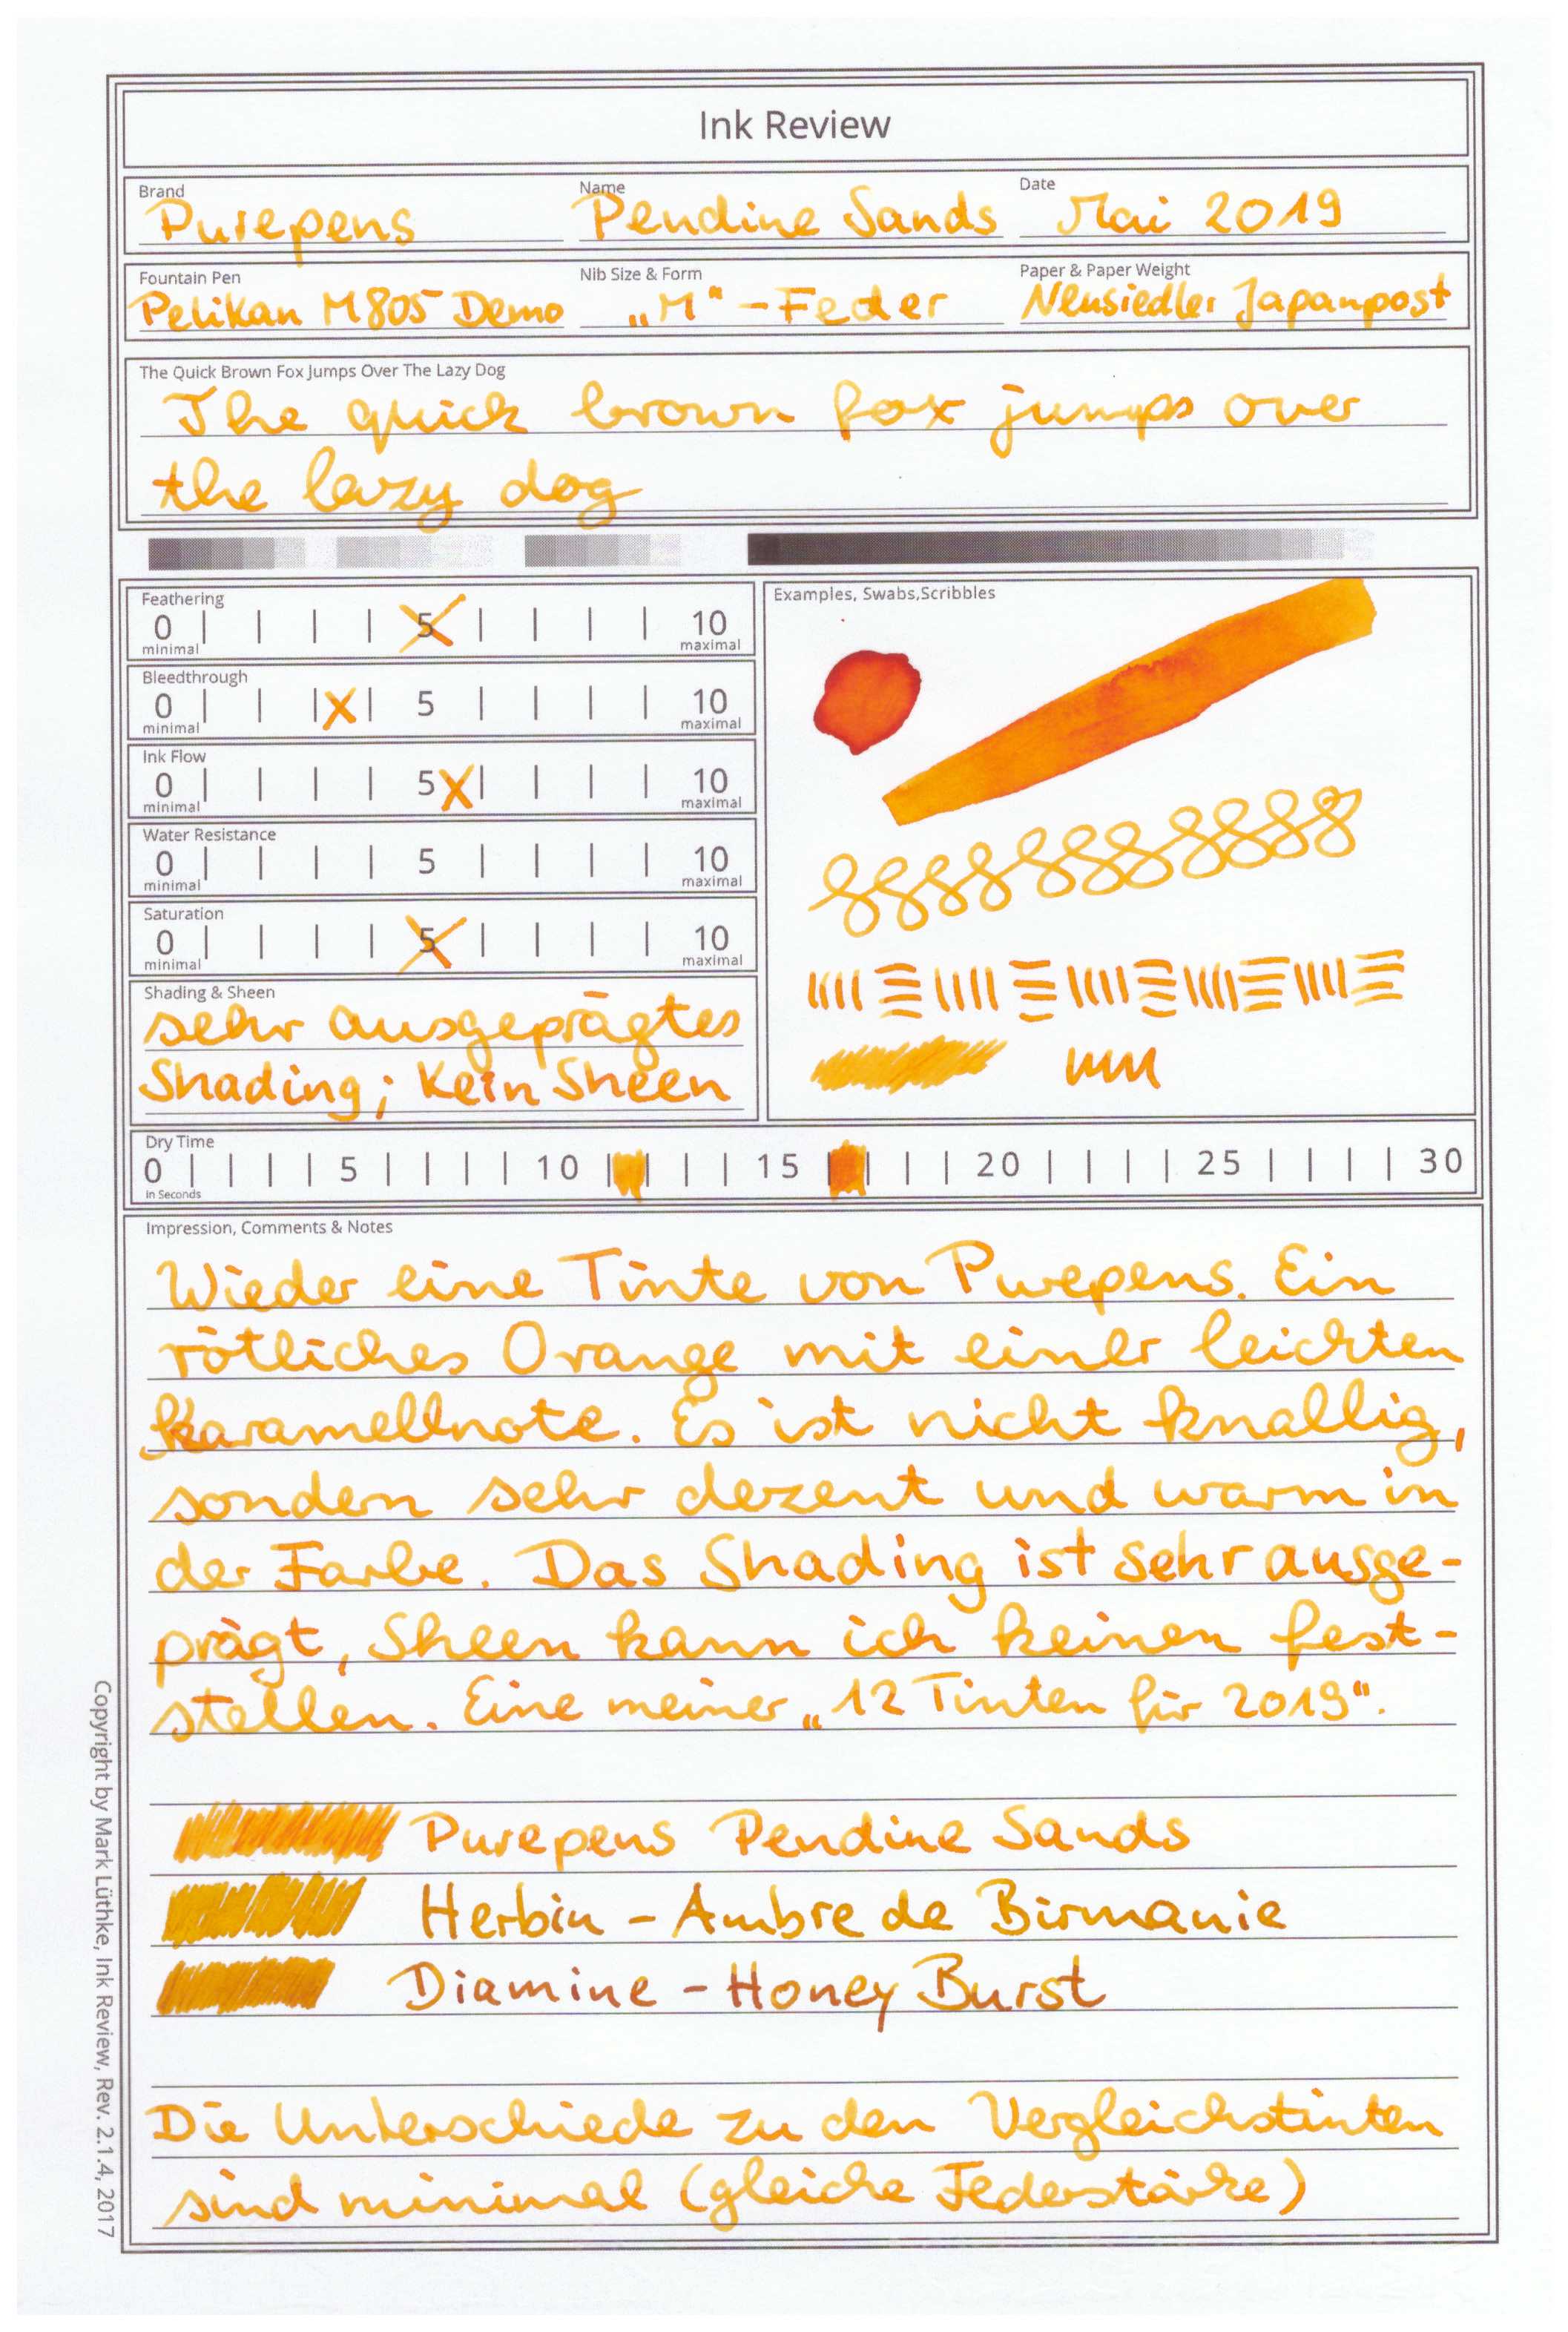 Ink Review
Brand
Name
Date
Purepens
Pendine Sands
Mai 2019
Fountain Pen
Nib Size & Form
Paper & Paper Weight
Pelikan M805 Demo
„M“-Feder
Neusiedler Japanpost
The Quick Brown Fox Jumps Over The Lazy Dog
The quick brown fox jumps over
the lazy dog
Feathering
0 | | | | 5 | | | | 10
minimal maximal
Bleedthrough
0 | | | X | 5 | | | | 10
minimal maximal
Ink Flow
0 | | | | 5 X | | | | 10
minimal maximal
Water Resistance
0 | | | | 5 | | | | 10
minimal maximal
Saturation
0 | | | | 5 | | | | 10
minimal maximal
Shading & Sheen
sehr ausgeprägtes
Shading; Kein Sheen
Examples, Swabs,Scribbles
Dry Time
0 | | | | 5 | | | | 10 | | | | 15 | | | | 20 | | | | 25 | | | | 30
in Seconds
Impression, Comments & Notes
Wieder eine Tinte von Purepens. Ein
rötliches Orange mit einer leichten
Karamellnote. Es ist nicht knallig,
sondern sehr dezent und warm in
der Farbe. Das Shading ist sehr ausge-
prägt, Sheen kann ich keinen fest-
stellen. Eine meiner „12 Tinten für 2019“.
Purepens Pendine Sands
Herbin - Ambre de Birmanie
Diamine - Honey Burst
Die Unterschiede zu den Vergleichstinten
sind minimal (gleiche Federstärke)
Copyright by Mark Lüthke, Ink Review, Rev. 2.1.4, 2017